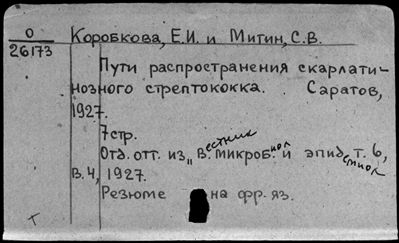 0
26173
Коробкова, Е.И. и Митин, С.В.
Пути распространения скарлати-
нозного стрептококка. Саратов,
1927.
7стр.
Отд. отт. из „Вестник микробиол. и эпидемиол. т. 6,
в. 4, 1927.
Резюме на фр. яз.
Т